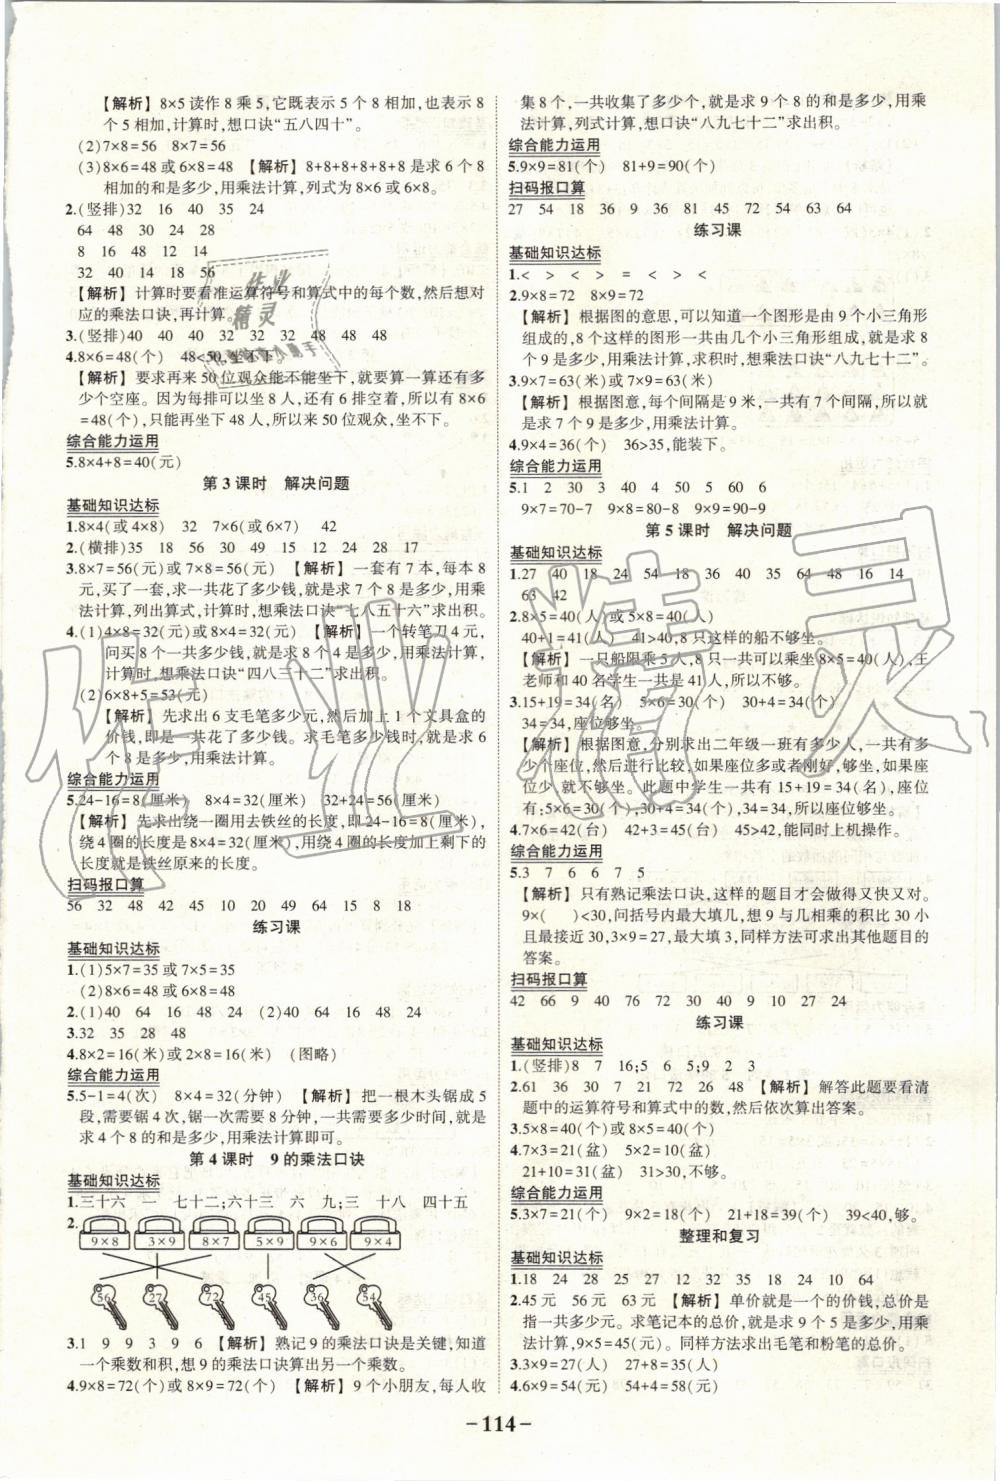 【解析】8×5读作8乘5,它既表示5个8相加,也表示8
个5相加,计算时,想口诀“五八四十”。
(2)7×8=56 8×7=56
(3)8×6=48或6×8=48 【解析】8+8+8+8+8+8是求6个8
相加的和是多少,用乘法计算,列式为8×6或6×8。
2.(竖排)32 16 40 35 24
64 48 30 24 28
8 16 48 12 14
32 40 14 18 56
【解析】计算时要看准运算符号和算式中的每个数,然后想对
应的乘法口诀,再计算。
3.(竖排)40 40 40 32 32 32 48 48 48
4.8×6=48(个) 48<50,坐不下。
【解析】要求再来50位观众能不能坐下,就要算一算还有多
少个空座。因为每排可以坐8人,还有6排空着,所以有8×6
=48(个),只能再坐下48人,所以来50位观众,坐不下。
综合能力运用
5.8×4+8=40(元)
第3课时 解决问题
基础知识达标
1.8×4(或4×8) 32 7×6(或6×7) 42
2.(横排)35 18 56 30 36 24 28 17
3.8×7=56(元)或7×8=56(元) 【解析】一套有7本,每本8
元,买了一套,求一共花了多少钱,就是求7个8是多少,用乘
法计算,列出算式,计算时,想乘法口诀“七八五十六”求出积。
4.(1)4×8=32(元)或8×4=32(元) 【解析】一个转笔刀4元,
问买8个一共多少钱,就是求8个4是多少,用乘法计
算,计算时,想乘法口诀“四八三十二”求出积。
(2)6×8+5=53(元)
【解析】先求出6支毛笔多少元,然后加上1个文具盒的
价钱,即是一共花了多少钱。求毛笔多少钱时,就是求6
个8是多少,用乘法计算。
综合能力运用
5.24-16=8(厘米) 8×4=32(厘米) 32+24=56(厘米)
【解析】先求出绕一圈用去铁丝的长度,即24-16=8(厘米),
绕4圈的长度是8×4=32(厘米),用绕4圈的长度加上剩下的
长度就是铁丝原来的长度。
扫码报口算
56 32 48 42 45 10 20 49 64 15 8 18
练习课
基础知识达标
1.(1)5×7=35或7×5=35
(2)8×6=48或6×8=48
2.(1)40 64 16 48 24 (2)40 64 16 48 24
3.32 35 28 48
4.8×2=16(米)或2×8=16(米) (图略)
综合能力运用
5.5-1=4(次) 8×4=32(分钟) 【解析】把一根木头锯成5
段,需要锯4次,锯一次需要8分钟,一共需要多少时间,就是
求4个8的和是多少,用乘法计算即可。
第4课时 9的乘法口诀
基础知识达标
1.三十六 一 七十二;六十三 六 九;三 十八 四十五
2.
9×8 3×9 8×7 5×9 9×6 9×4
56 27 72 45 36 54
3.1 9 9 3 9 6 【解析】熟记9的乘法口诀是关键,知道
一个乘数和积,想9的乘法口诀算出另一个乘数。
4.9×8=72(个)或8×9=72(个) 【解析】9个小朋友,每人收
集8个,一共收集了多少个,就是求9个8的和是多少,用乘
法计算,列式计算,想口诀“八九七十二”求出积。
综合能力运用
5.9×9=81(个) 81+9=90(个)
扫码报口算
27 54 18 36 9 36 81 45 72 54 63 64
练习课
基础知识达标
1.< > < > = < > <
2.9×8=72 8×9=72
【解析】根据图的意思,可以知道一个图形是由9个小三角形
组成的,8个这样的图形一共由几个小三角形组成,就是求8
个9是多少,用乘法计算,求积时,想乘法口诀“八九七十二”。
3.9×7=63(米)或7×9=63(米)
【解析】根据图意,每个间隔是9米,一共有7个间隔,所以就
是求7个9是多少,用乘法计算。
4.9×4=36(个) 36>35,能装下。
综合能力运用
5.1 2 30 3 40 4 50 5 60 6
9×7=70-7 9×8=80-8 9×9=90-9
第5课时 解决问题
基础知识达标
1.27 40 18 24 54 18 36 40 35 64 48 16 14
63 42
2.8×5=40(人)或5×8=40(人)
40+1=41(人) 41>40,8只这样的船不够坐。
【解析】一只船限乘5人,8只一共可以乘坐8×5=40(人),王
老师和40名学生一共是41人,所以不够坐。
3.15+19=34(名) 5×6=30(个) 30+4=34(个)
34=34,座位够坐。
【解析】根据图意,分别求出二年级一班有多少人,一共有多
少个座位,然后进行比较,如果座位多或者刚好,够坐,如果座
位少,就不够坐。此题中学生一共有15+19=34(名),座位
有:5×6=30(个),30+4=34(个),34=34,所以座位够坐。
4.7×6=42(台) 42+3=45(台) 45>42,能同时上机操作。
综合能力运用
5.3 7 6 6 7 5
【解析】只有熟记乘法口诀,这样的题目才会做得又快又对。
9×( )<30,问括号内最大填几,想9与几相乘的积比30小
且最接近30,3×9=27,最大填3,同样方法可求出其他题目的
答案。
扫码报口算
42 66 9 40 76 72 30 40 9 10 27 24
练习课
基础知识达标
1.(竖排)8 7 16;5 6 5;9 2 3
2.61 36 30 7 21 72 26 48 【解析】解答此题要看清
题中的运算符号和算式中的数,然后依次算出答案。
3.5×8=40(个)或8×5=40(个)
4.7×3=21(盆) 5×2=10(盆)
21+10=31(盆) 31>30,不够。
综合能力运用
5.3×7=21(个) 9×2=18(个) 21+18=39(个) 39<40,够。
整理和复习
基础知识达标
1.18 24 28 25 27 12 32 35 18 24 10 64
2.45元 56元 63元 【解析】单价就是一个的价钱,总价是
指一共多少元。求笔记本的总价,就是求9个5是多少,用乘
法计算,9×5=45(元)。同样方法求出毛笔和粉笔的总价。
3.3×9=27(个) 27+8=35(个)
4.6×9=54(元) 54+4=58(元)
-114-
作业精灵